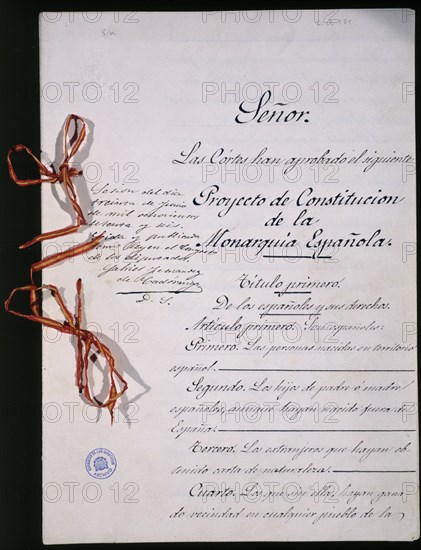 Señor:
Las Córtes han aprobado el siguiente
Proyecto de Constitucion
de la
Monarquía Española.
Sesion del dia
treinta de junio
de mil ochocientos
setenta y seis.
como Ley en el Congreso
de los Diputados
D. S.
Título primero.
De los españoles y sus derechos.
Artículo primero. Son españoles:
Primero. Las personas nacidas en territorio
español.
Segundo. Los hijos de padre ó madre
españoles, aunque hayan nacido fuera de
España.
Tercero. Los extranjeros que hayan ob-
tenido carta de naturaleza.
Cuarto. Los que sin ella, hayan gana-
do vecindad en cualquier pueblo de la
PHOTO 12